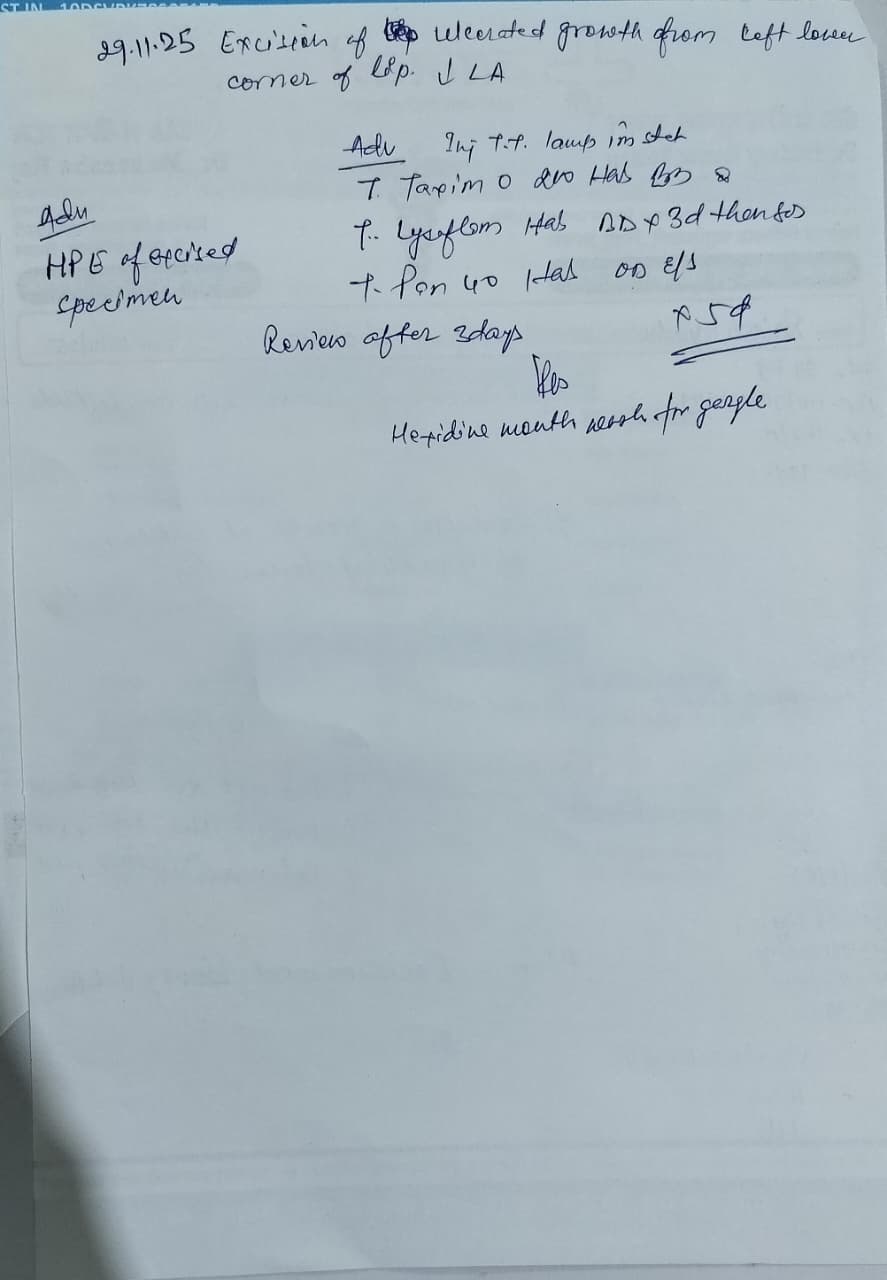 29.11.25 Excision of ulcerated growth from left lower
corner of lip. ↓ LA
Adv Inj T.T. 1amp im stat
T. Taxim O 200 1tab BD
Adv
HPE of excised
specimen
T. Lyseflam 1tab BD x 3d then SOS
T. Pan 40 1tab OD E/S
x 5d
Review after 3days
Hexidine mouth wash for gargle